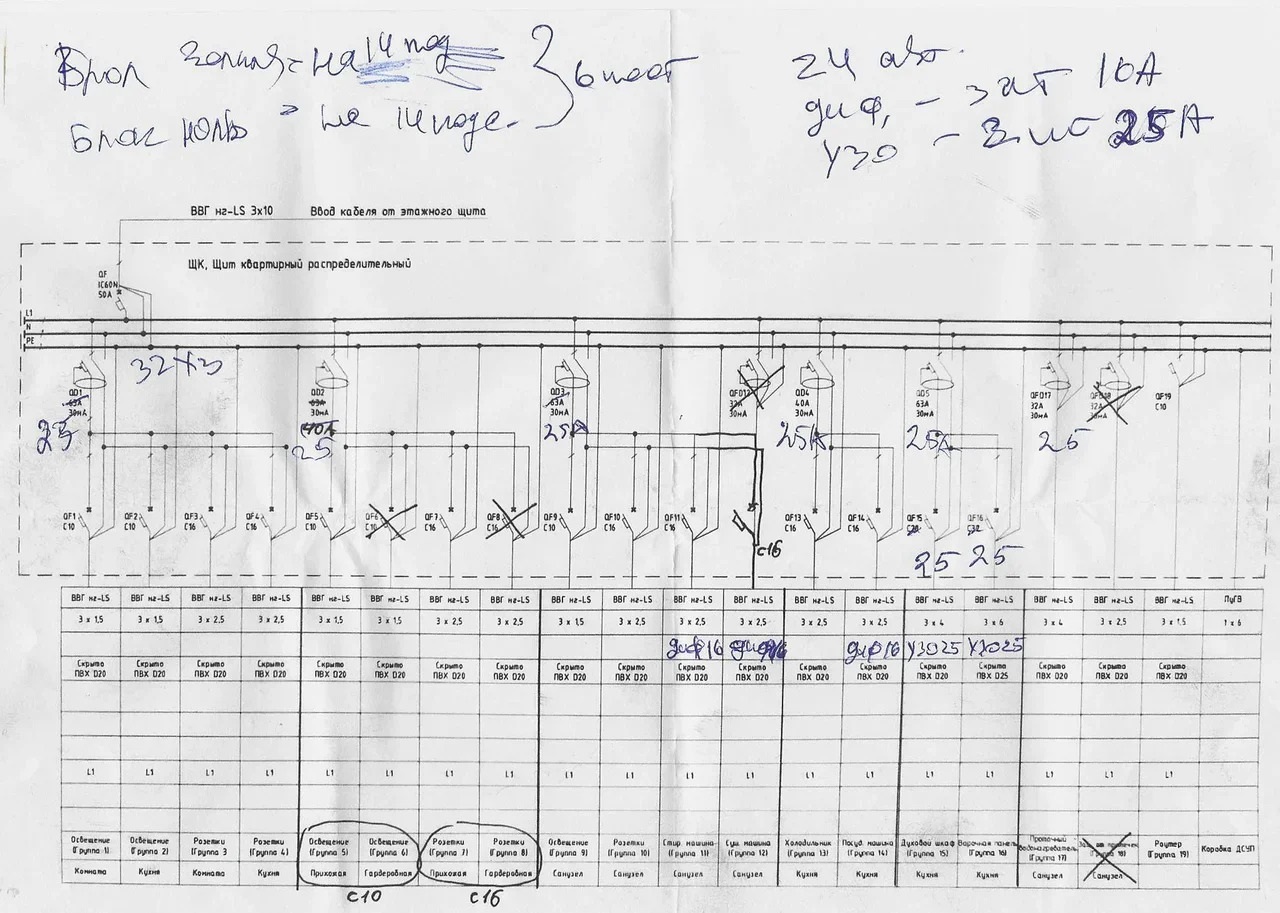 Блок земля = на 14 под
Блок ноль = на 14 подс.
6 шт
24 авт.
диф. - 3 шт 10А
УЗО - 3 шт 25А
ВВГ нг-LS 3х10 Ввод кабеля от этажного щита
ЩК, Щит квартирный распределительный
QF
IC60N
50А
L1
N
PE
32х3
QD1 QD2 QD3 QFD12 QD4 QD5 QFD17 QFD18 QF19
63А 63А 63А 32А 40А 63А 32А 32А С10
30мА 30мА 30мА 30мА 30мА 30мА 30мА 30мА
40А
25 25 25А 25А 25А 25
QF1 QF2 QF3 QF4 QF5 QF6 QF7 QF8 QF9 QF10 QF11 QF13 QF14 QF15 QF16
С10 С10 С16 С16 С10 С10 С16 С16 С10 С16 С16 С16 С16 С20 С32
С16
25 25
ВВГ нг-LS ВВГ нг-LS ВВГ нг-LS ВВГ нг-LS ВВГ нг-LS ВВГ нг-LS ВВГ нг-LS ВВГ нг-LS ВВГ нг-LS ВВГ нг-LS ВВГ нг-LS ВВГ нг-LS ВВГ нг-LS ВВГ нг-LS ВВГ нг-LS ВВГ нг-LS ВВГ нг-LS ВВГ нг-LS ВВГ нг-LS ПуГВ
3 х 1,5 3 х 1,5 3 х 2,5 3 х 2,5 3 х 1,5 3 х 1,5 3 х 2,5 3 х 2,5 3 х 1,5 3 х 2,5 3 х 2,5 3 х 2,5 3 х 2,5 3 х 2,5 3 х 4 3 х 6 3 х 4 3 х 2,5 3 х 1,5 1 х 6
диф16 диф16 диф16 УЗО25 УЗО25
Скрыто Скрыто Скрыто Скрыто Скрыто Скрыто Скрыто Скрыто Скрыто Скрыто Скрыто Скрыто Скрыто Скрыто Скрыто Скрыто Скрыто Скрыто Скрыто
ПВХ D20 ПВХ D20 ПВХ D20 ПВХ D20 ПВХ D20 ПВХ D20 ПВХ D20 ПВХ D20 ПВХ D20 ПВХ D20 ПВХ D20 ПВХ D20 ПВХ D20 ПВХ D20 ПВХ D20 ПВХ D25 ПВХ D20 ПВХ D20 ПВХ D20
L1 L1 L1 L1 L1 L1 L1 L1 L1 L1 L1 L1 L1 L1 L1 L1 L1 L1 L1
Освещение Освещение Розетки Розетки Освещение Освещение Розетки Розетки Освещение Розетки Стир. машина Суш. машина Холодильник Посуд. машина Духовой шкаф Варочная панель Проточный водонагреватель Роутер Коробка ДСУП
(Группа 1) (Группа 2) (Группа 3 (Группа 4) (Группа 5) (Группа 6) (Группа 7) (Группа 8) (Группа 9) (Группа 10) (Группа 11) (Группа 12) (Группа 13) (Группа 14) (Группа 15) (Группа 16) (Группа 17) (Группа 18) (Группа 19)
Комната Кухня Комната Кухня Прихожая Гардеробная Прихожая Гардеробная Санузел Санузел Санузел Санузел Кухня Кухня Кухня Кухня Санузел Санузел Прихожая
С10 С16